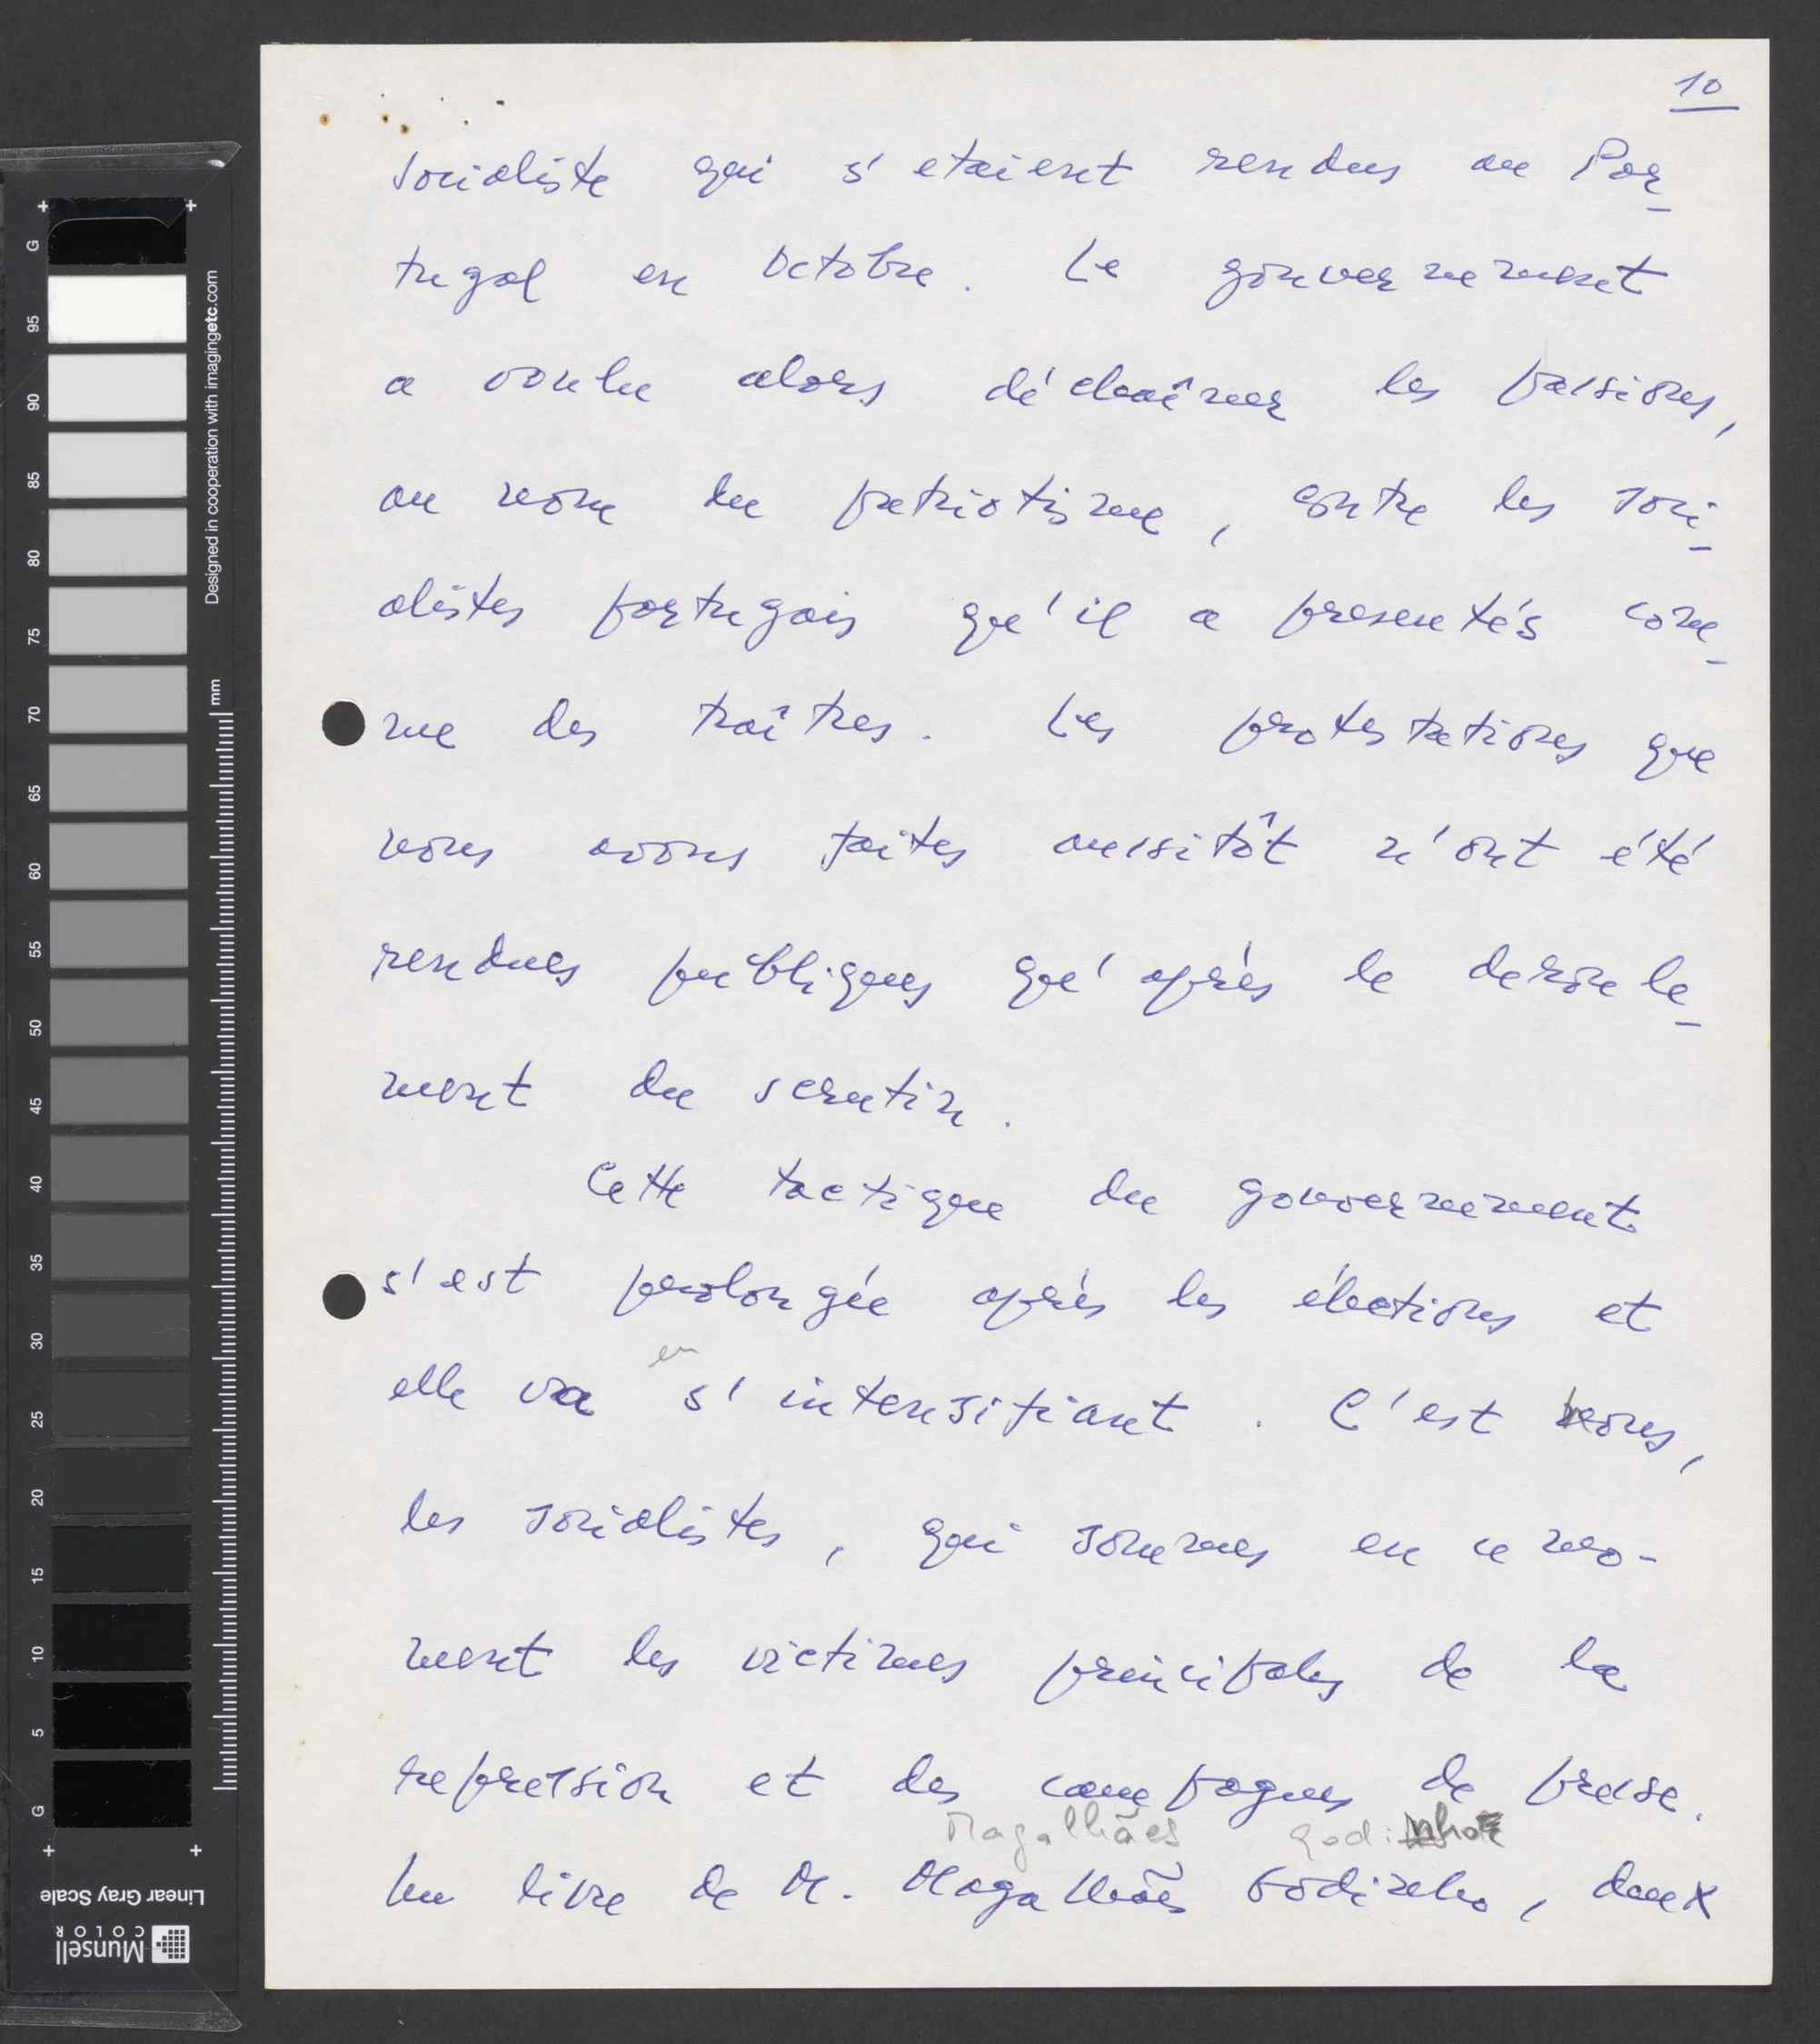 10
socialiste qui s'etaient rendus au Por-
tugal en Octobre. Le gouvernement
a voulu alors déchaîner les passions,
au nom du patriotisme, contre les soci-
alistes portugais qu'il a presentés com-
me des traîtres. Les protestations que
nous avons faites aussitôt n'ont été
rendues publiques qu'après le deroule-
ment du scrutin.
Cette tactique du gouvernement
s'est prolongée après les élections et
en
elle va s'intensifiant. C'est nous,
les socialistes, qui sommes en ce mo-
ment les victimes principales de la
repression et des campagnes de presse.
Magalhães Godinho
Un livre de M. Magalhães Godinho, deux
G 95 90 85 80 75 70 65 60 55 50 45 40 35 30 25 20 15 10 5 G
mm
Designed in cooperation with imagingetc.com
Linear Gray Scale
Munsell
COLOR